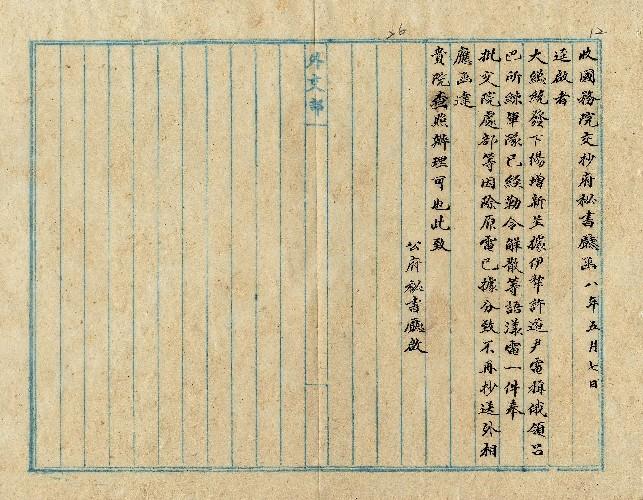 12
26
收國務院交抄府秘書廳函 八年五月七日
逕啟者
大總統發下楊增新呈據伊犂許道尹電稱俄領呂
巴所練軍隊已經勒令解散等語漾電一件奉
批交院處部等因除原電已據分致不再抄送外相
應函達
貴院查照辦理可也此致
公府秘書廳啟
外交部